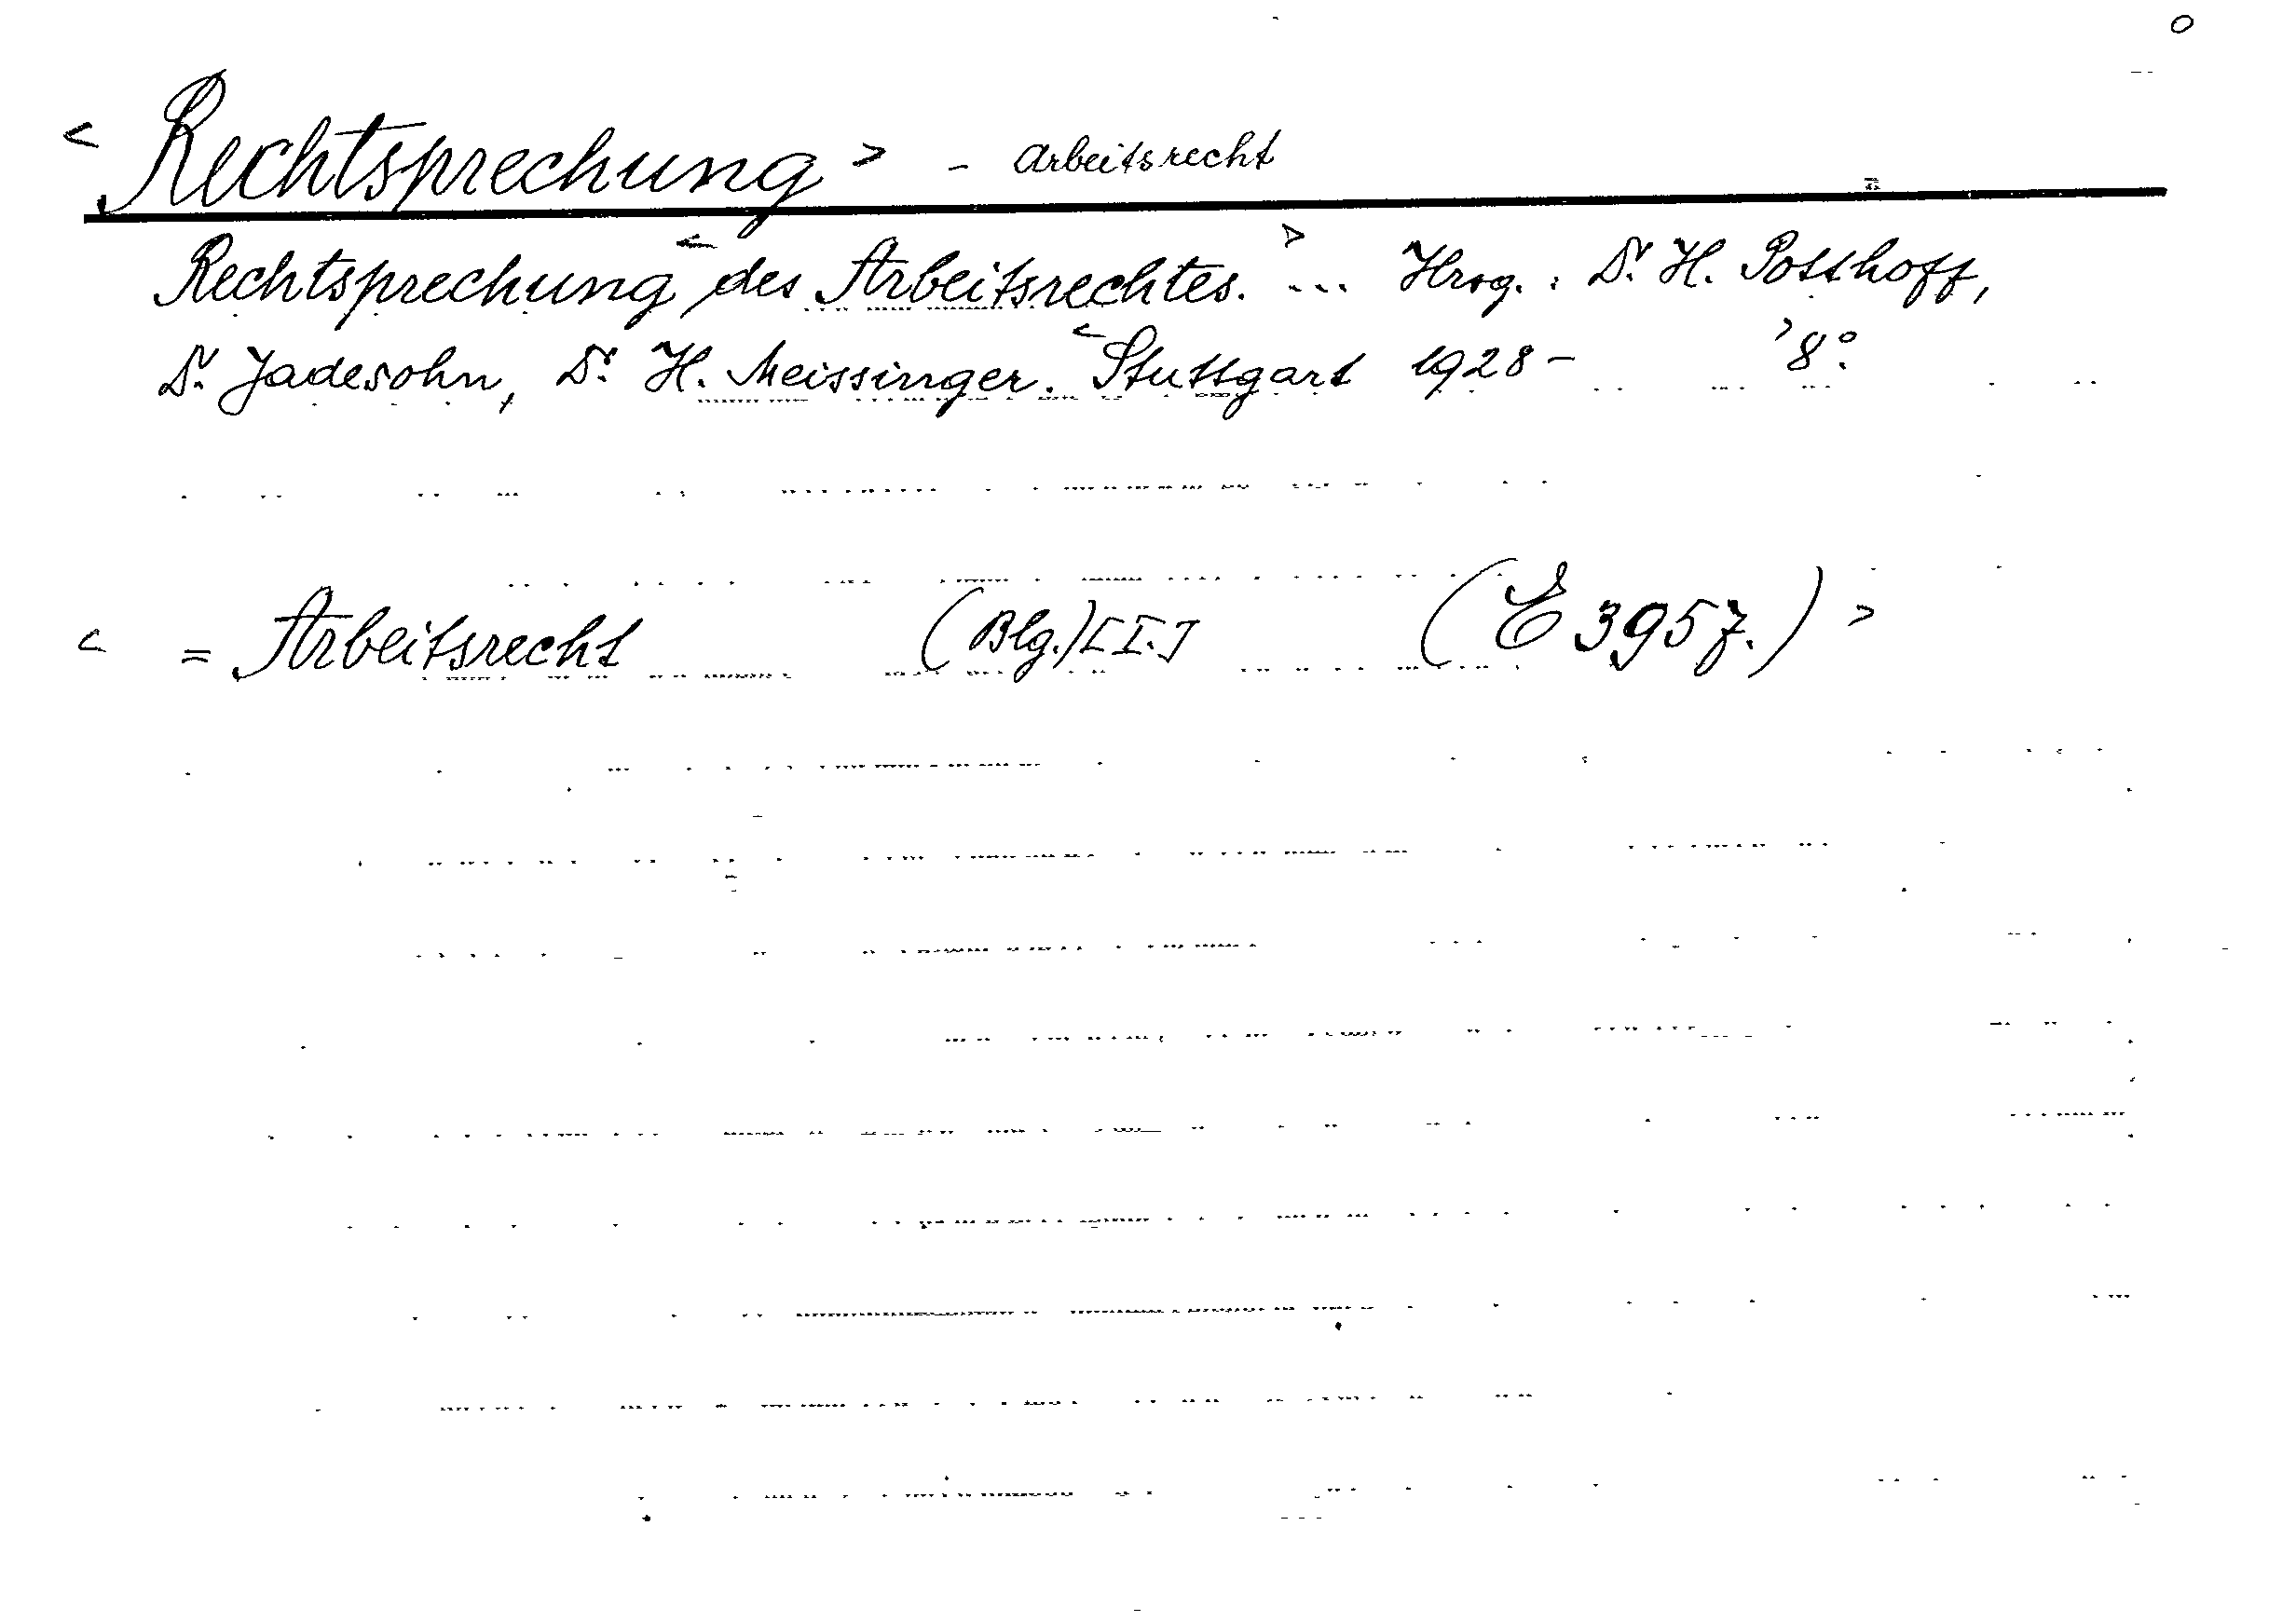 o
< Rechtsprechung > - Arbeitsrecht
Rechtsprechung < des Arbeitsrechtes. > ... Hrsg.: Dr. H. Potthoff,
Dr. Jadesohn, Dr. H. Meissinger. < Stuttgart 1928 - > 8°.
< = Arbeitsrecht (Blg.) [I.] (E 3957.) >